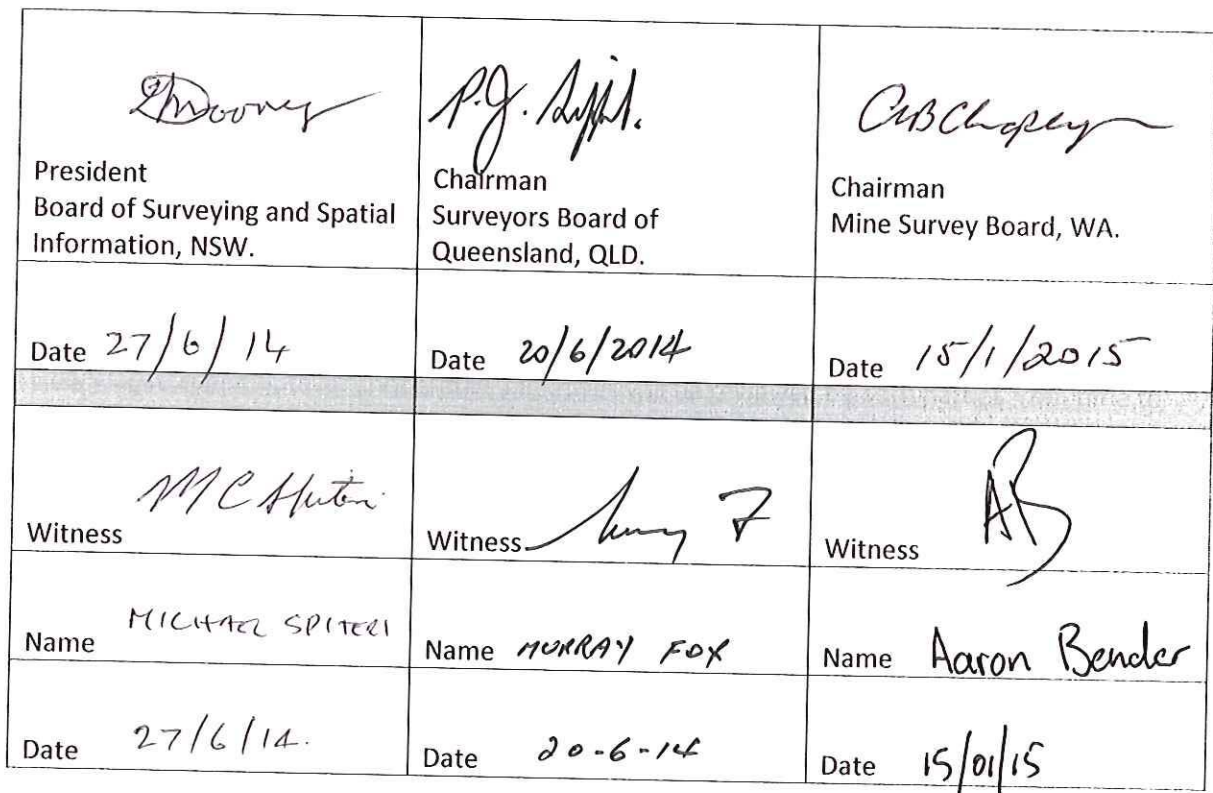 President
Board of Surveying and Spatial
Information, NSW.
Chairman
Surveyors Board of
Queensland, QLD.
Chairman
Mine Survey Board, WA.
Date 27/6/14
Date 20/6/2014
Date 15/1/2015
Witness
Witness
Witness
Name MICHAEL SPITERI
Name MURRAY FOX
Name Aaron Bender
Date 27/6/14.
Date 20-6-14
Date 15/01/15